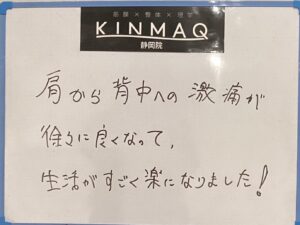 筋膜×整体×理学
KINMAQ
静岡院
肩から背中への激痛が
徐々に良くなって、
生活がすごく楽になりました!